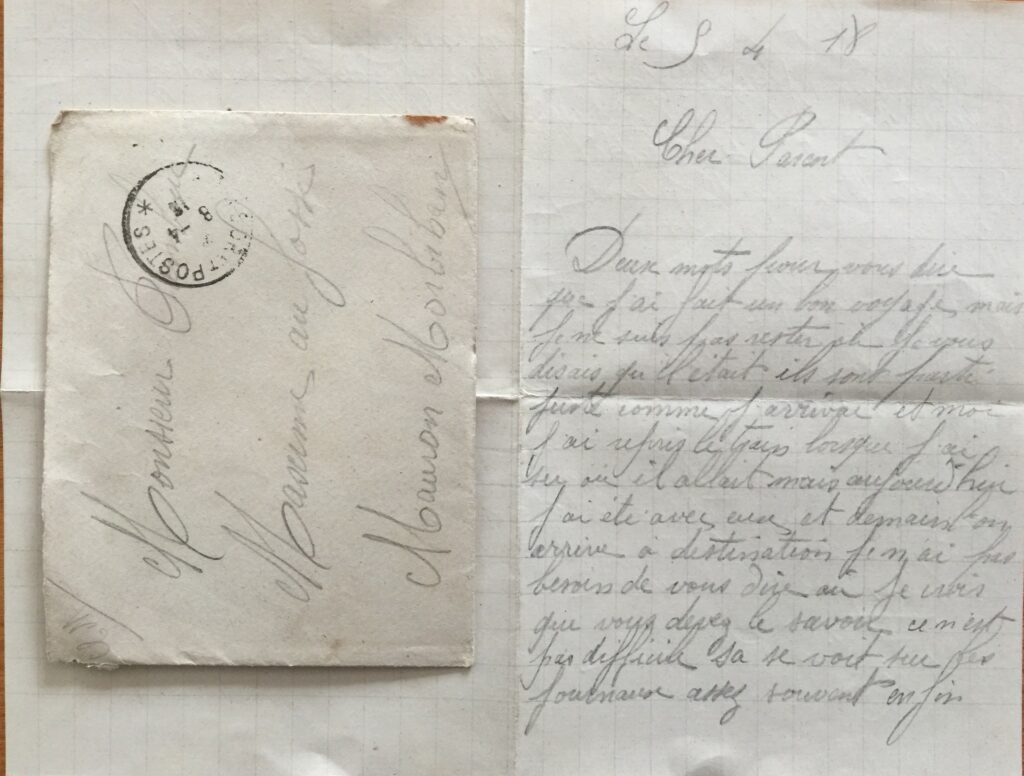 Le 5 4 18
Cher Parent
Deux mots pour vous dire
que j'ai fait un bon voyage mais
je ne suis pas rester ou je vous
disais qu'il était ils sont parti
juste comme j'arrivai et moi
j'ai repris le train lorsque j'ai
su ou il allait mais aujourd'hui
j'ai été avec eux et demain on
arrive a destination je n'ai pas
besoin de vous dire ou je crois
que vous devez le savoir ce n'est
pas difficile sa se voit sur les
journaux assez souvent enfin
Monsieur
Maxime au
Mauron Morbihan
ET POSTES *
8